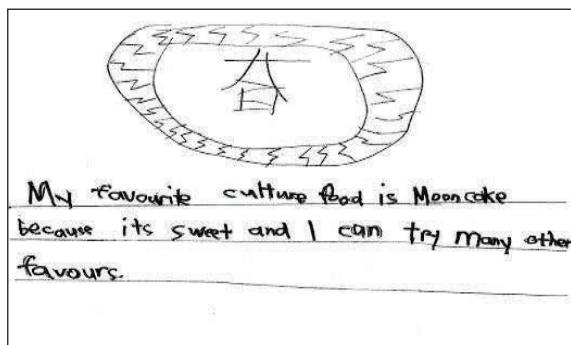 My favourite culture food is Mooncake
because its sweet and I can try many other
favours.